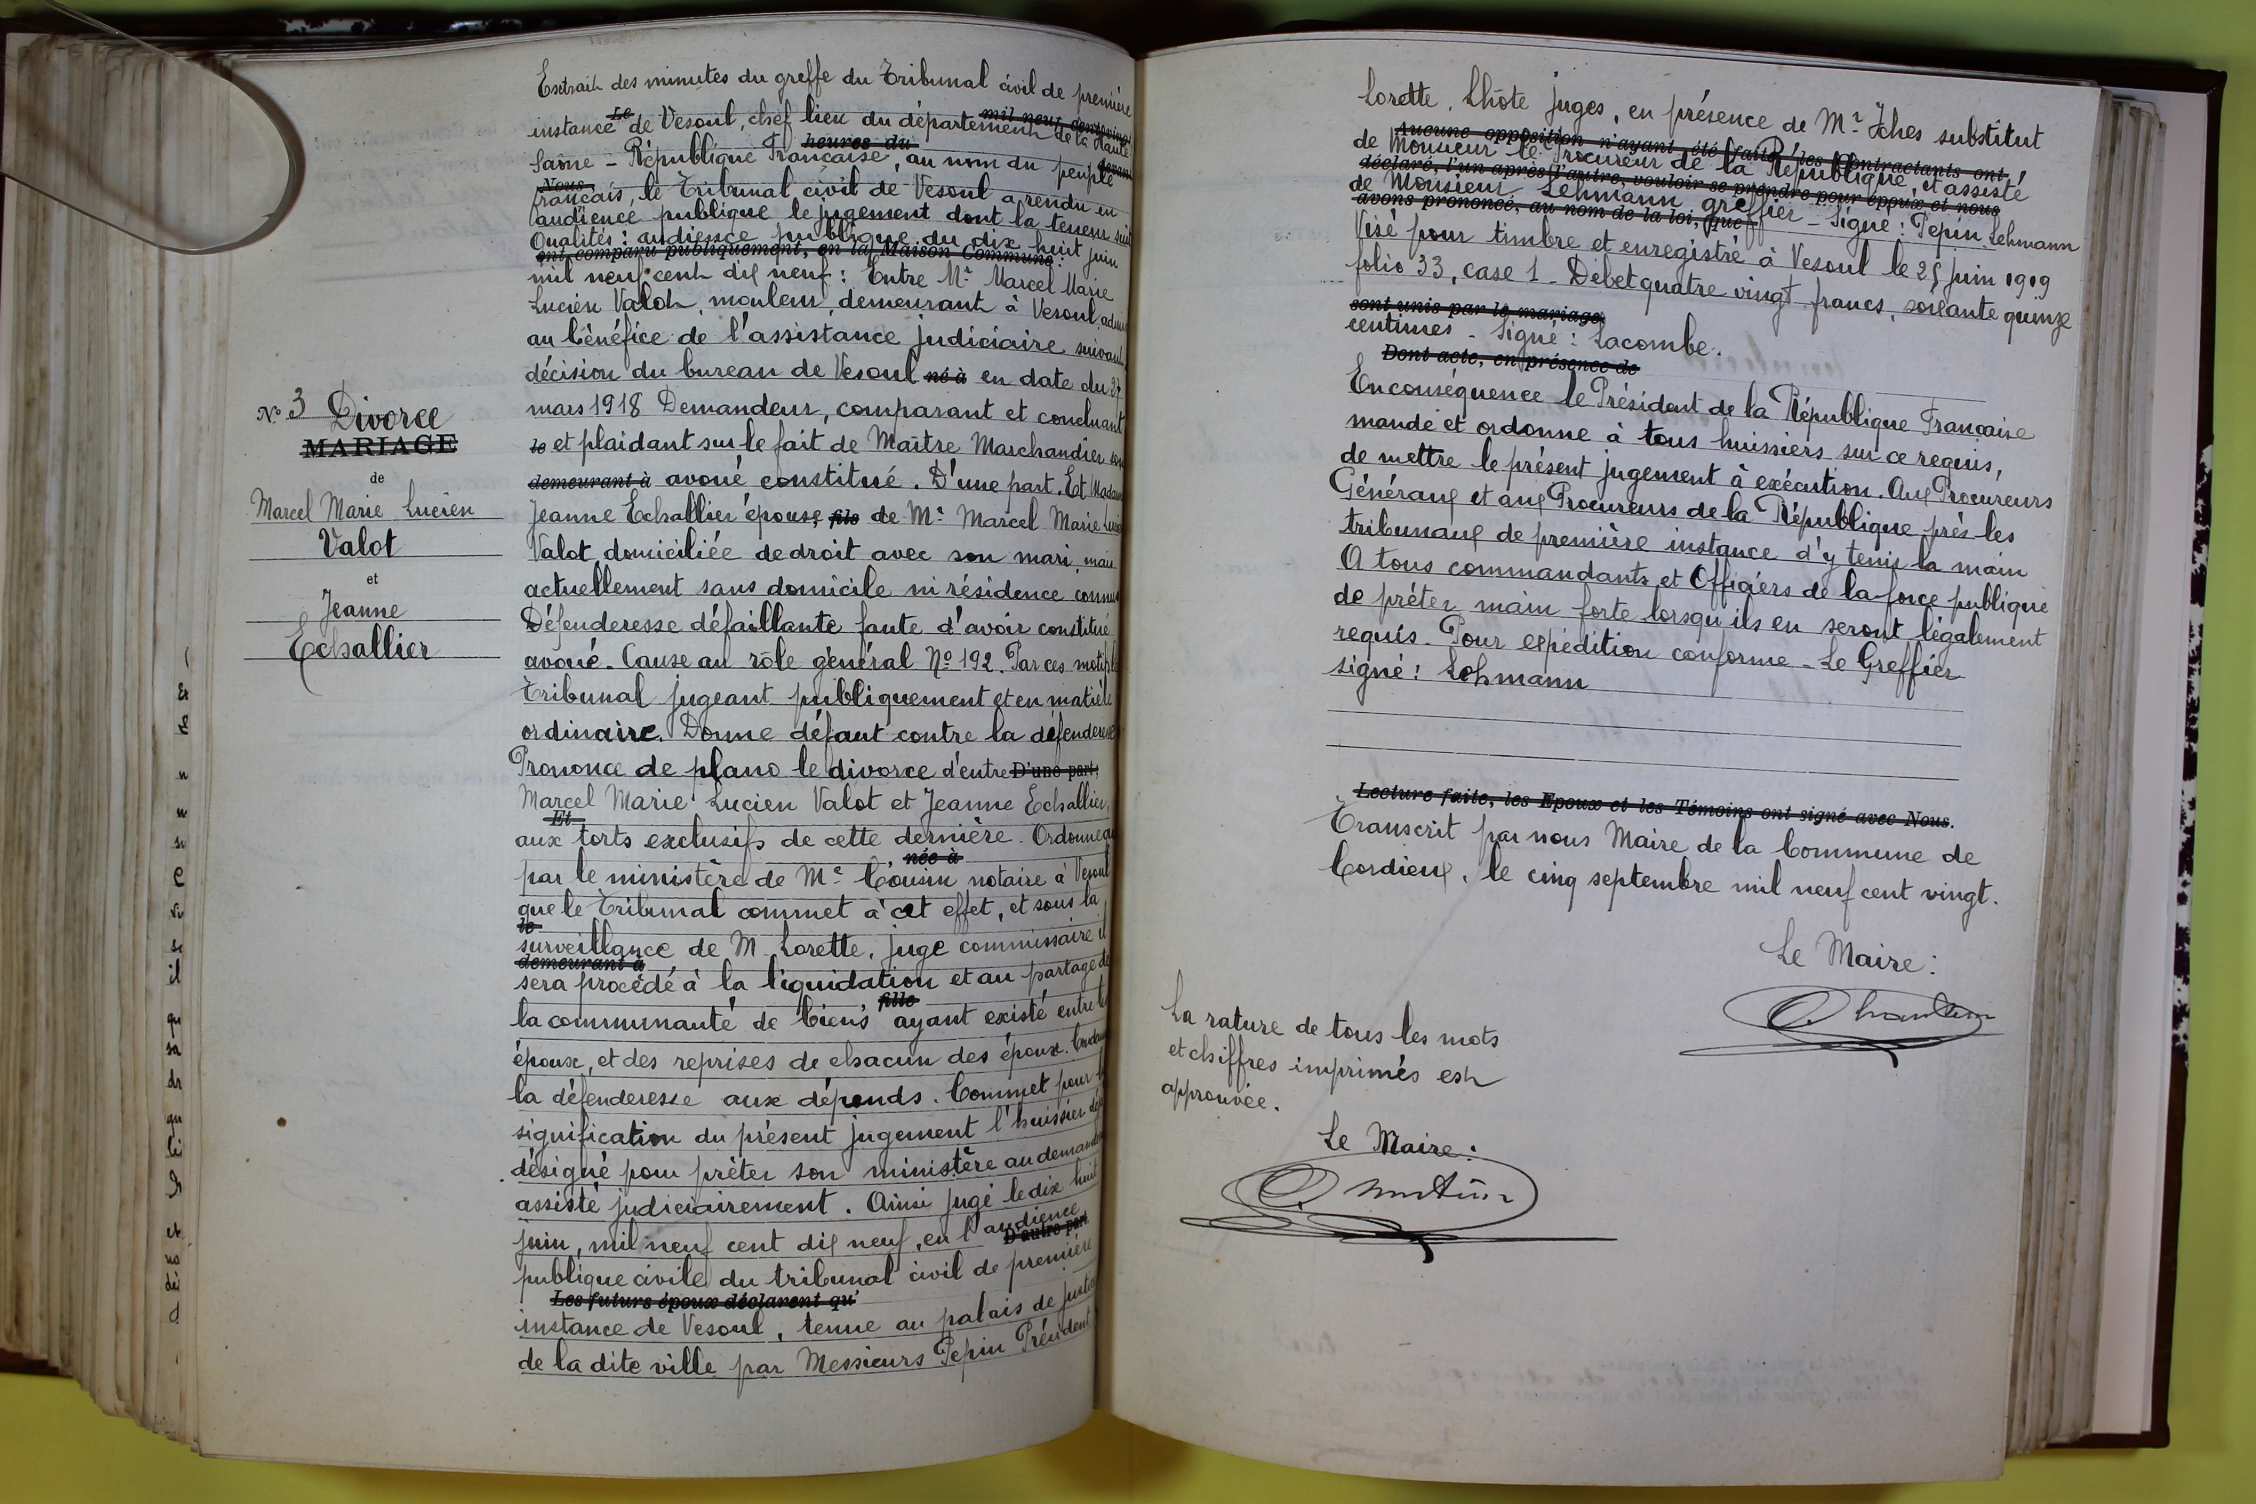 Extrait des minutes du greffe du Tribunal civil de première
Le mil neuf cent vingt
instance de Vesoul, chef lieu du département de la Haute
heures du
Saône - République Française, au nom du peuple
Nous
français, le Tribunal civil de Vesoul a rendu en
audience publique le jugement dont la teneur suit
Qualités : audience publique du dix huit juin
ont comparu publiquement, en la Maison Commune:
mil neuf cent dix neuf : Entre Mr Marcel Marie
Lucien Valot, mouleur, demeurant à Vesoul, admis
au bénéfice de l'assistance judiciaire suivant
décision du bureau de Vesoul né à en date du 27
mars 1918 Demandeur, comparant et concluant
le et plaidant sur le fait de Maître Marchandier son
demeurant à avoué constitué. D'une part. Et Madame
Jeanne Echallier épouse fils de Mr Marcel Marie Lucien
Valot domiciliée de droit avec son mari, mais
actuellement sans domicile ni résidence connus
Défenderesse défaillante faute d'avoir constitué
avoué. Cause au rôle général No 192. Par ces motifs le
Tribunal jugeant publiquement et en matière
ordinaire. Donne défaut contre la défenderesse
Prononce de plano le divorce d'entre D'une part;
Marcel Marie Lucien Valot et Jeanne Echallier,
Et
aux torts exclusifs de cette dernière. Ordonne que
née à
par le ministère de Me Cousin notaire à Vesoul
que le Tribunal commet à cet effet, et sous la
le
surveillance de M. Lorette, juge commissaire il
demeurant à
sera procédé à la liquidation et au partage de
fille
la communauté de biens ayant existé entre les
époux, et des reprises de chacun des époux. Condamne
la défenderesse aux dépends. Commet pour la
signification du présent jugement l'huissier déjà
désigné pour prêter son ministère au demandeur
assisté judiciairement. Ainsi jugé le dix huit
juin, mil neuf cent dix neuf, en l'audience
D'autre part
publique civile du tribunal civil de première
Les futurs époux déclarent qu'
instance de Vesoul, tenue au palais de justice
de la dite ville par Messieurs Pepin Président
No 3 Divorce
MARIAGE
de
Marcel Marie Lucien
Valot
et
Jeanne
Echallier
Lorette, Lhôte juges, en présence de Mr Iches substitut
Aucune opposition n'ayant été faite, les Contractants ont
de Monsieur le Procureur de la République, et assisté
déclaré, l'un après l'autre, vouloir se prendre pour époux et nous
de Monsieur Lehmann greffier - Signé : Pepin Lehmann
avons prononcé, au nom de la loi, que
Visé pour timbre et enregistré à Vesoul le 25 juin 1919
folio 33, case 1 - Débet quatre vingt francs, soixante quinze
sont unis par le mariage
centimes - Signé : Lacombe.
Dont acte, en présence de
En conséquence le Président de la République Française
mande et ordonne à tous huissiers sur ce requis,
de mettre le présent jugement à exécution. Aux Procureurs
Généraux et aux Procureurs de la République près les
tribunaux de première instance d'y tenir la main
A tous commandants et Officiers de la force publique
de prêter main forte lorsqu'ils en seront légalement
requis. Pour expédition conforme - Le Greffier
signé : Lehmann
Lecture faite, les Epoux et les Témoins ont signé avec Nous.
Transcrit par nous Maire de la Commune de
Cordieux, le cinq septembre mil neuf cent vingt.
Le Maire :
La rature de tous les mots
et chiffres imprimés est
approuvée.
Le Maire :